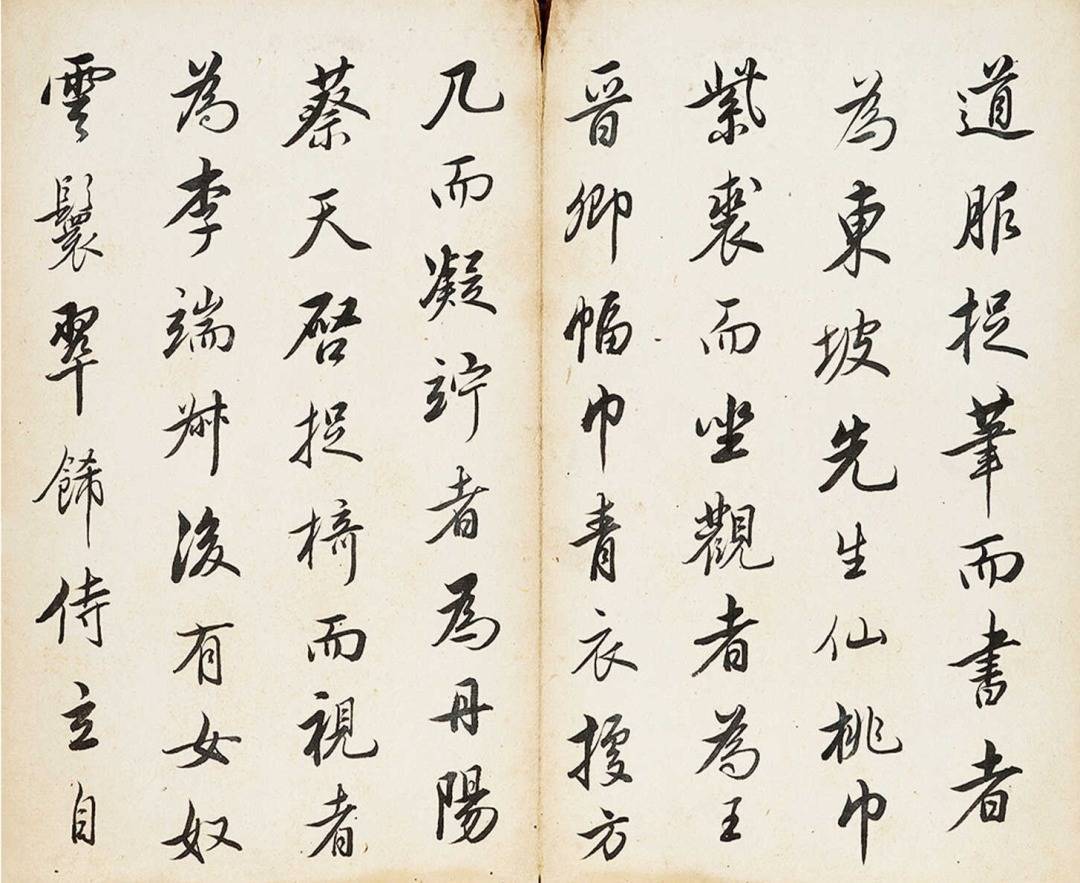 道服捉筆而書者
為東坡先生仙桃巾
紫裘而坐觀者為王
晋卿幅巾青衣據方
几而凝竚者為丹陽
蔡天啓捉椅而視者
為李端叔後有女奴
雲鬟翠飾侍立自